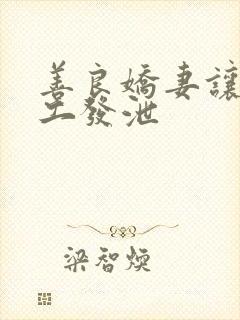 善良嬌妻讓
工發泄
梁智煥